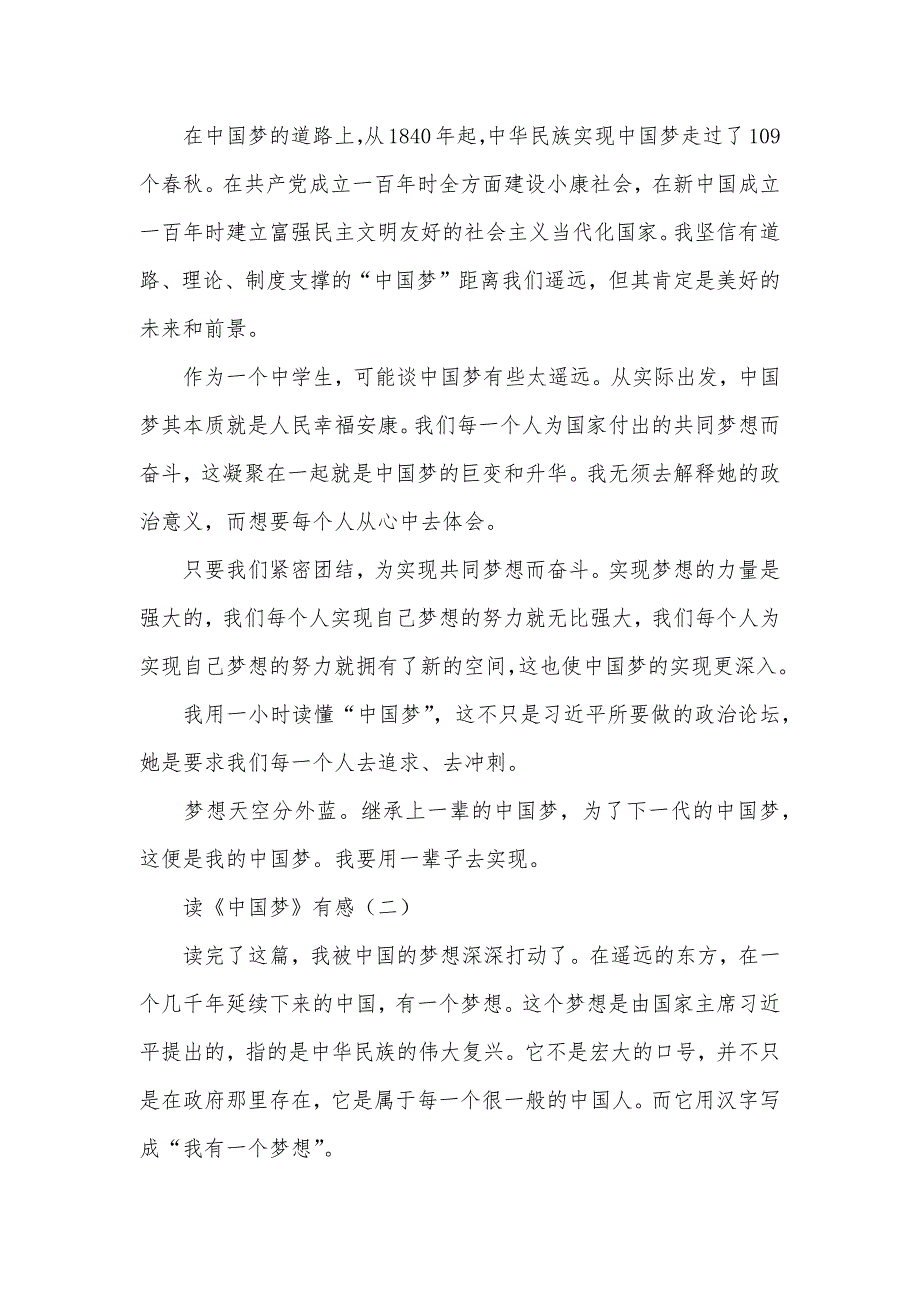 在中国梦的道路上，从1840年起，中华民族实现中国梦走过了109
个春秋。在共产党成立一百年时全方面建设小康社会，在新中国成立
一百年时建立富强民主文明友好的社会主义当代化国家。我坚信有道
路、理论、制度支撑的“中国梦”距离我们遥远，但其肯定是美好的
未来和前景。
作为一个中学生，可能谈中国梦有些太遥远。从实际出发，中国
梦其本质就是人民幸福安康。我们每一个人为国家付出的共同梦想而
奋斗，这凝聚在一起就是中国梦的巨变和升华。我无须去解释她的政
治意义，而想要每个人从心中去体会。
只要我们紧密团结，为实现共同梦想而奋斗。实现梦想的力量是
强大的，我们每个人实现自己梦想的努力就无比强大，我们每个人为
实现自己梦想的努力就拥有了新的空间，这也使中国梦的实现更深入。
我用一小时读懂“中国梦”，这不只是习近平所要做的政治论坛，
她是要求我们每一个人去追求、去冲刺。
梦想天空分外蓝。继承上一辈的中国梦，为了下一代的中国梦，
这便是我的中国梦。我要用一辈子去实现。
读《中国梦》有感（二）
读完了这篇，我被中国的梦想深深打动了。在遥远的东方，在一
个几千年延续下来的中国，有一个梦想。这个梦想是由国家主席习近
平提出的，指的是中华民族的伟大复兴。它不是宏大的口号，并不只
是在政府那里存在，它是属于每一个很一般的中国人。而它用汉字写
成“我有一个梦想”。